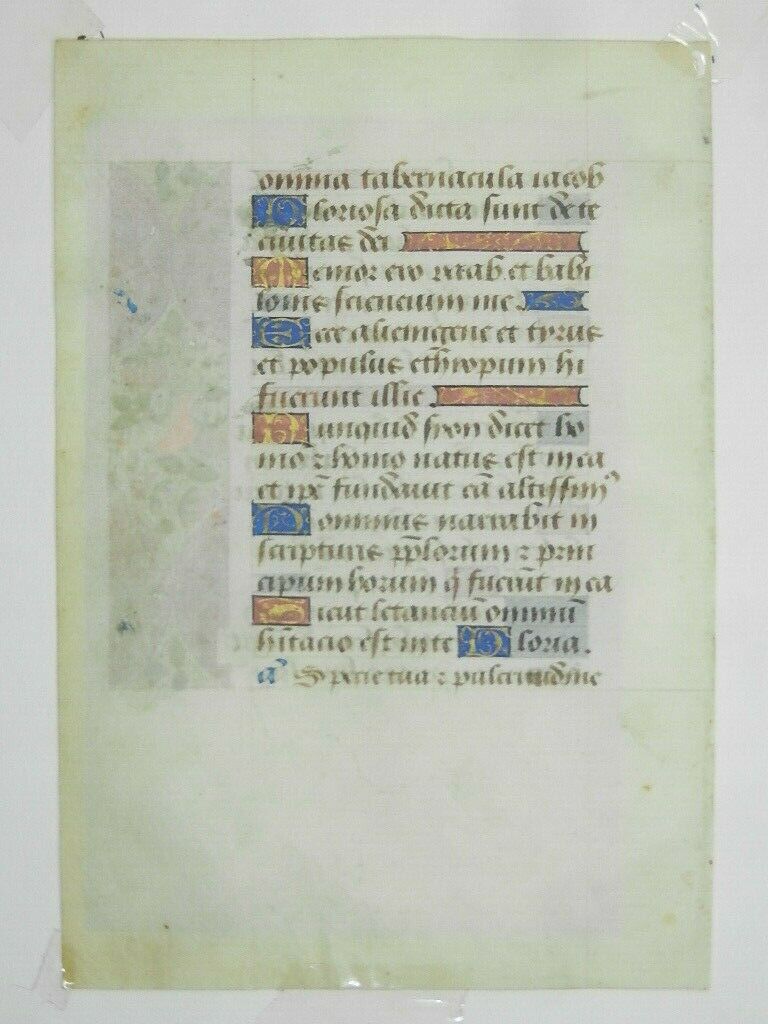 omnia tabernacula iacob
Gloriosa dicta sunt de te
ciuitas dei
Memor ero raab et babi
lonis sciencium me.
Ecce alienigene et tyrus
et populus ethyopum hi
fuerunt illic.
Nunquid syon dicet ho
mo ⁊ homo natus est in ea
et ip̄e fundauit eā altissimꝰ
Dominus narrabit in
scripturis pp̄lorum ⁊ prin
cipum horum q̄ fuerūt in ea
Sicut letanciū omniū
hitacio est in te Gloria.
añ Specie tua ⁊ pulcritudine